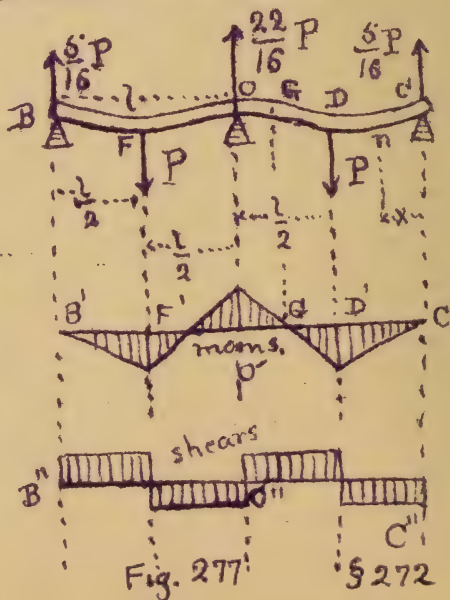 5/16 P 22/16 P 5/16 P
l
B O G D C
F n
P P
l/2 l/2 x
l/2
B' F G D' C
moms.
O'
shears
B" O"
C"
Fig. 277 § 272